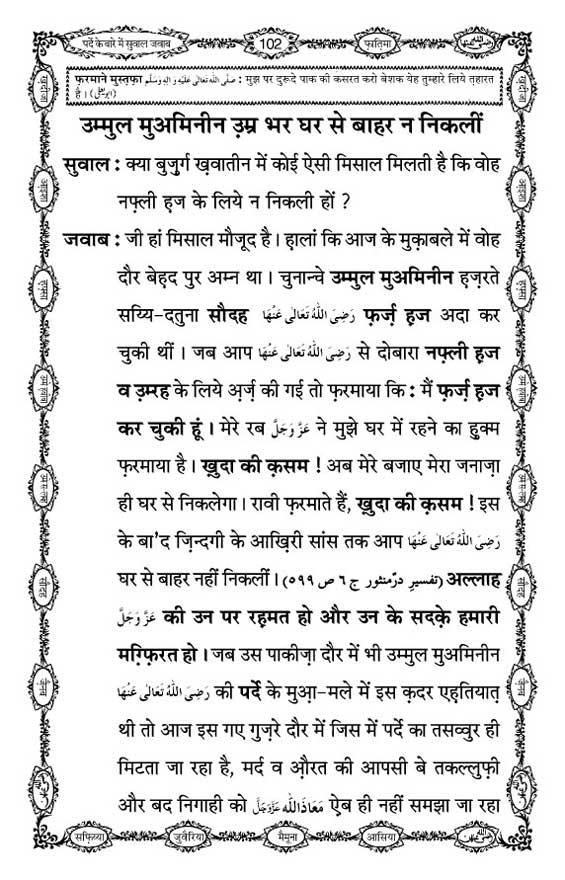 पर्दे के बारे में सुवाल जवाब
102
फ़ातिमा
फ़रमाने मुस्त़फ़ा صَلَّى اللّٰهُ تَعَالٰى عَلَيْهِ وَاٰلِهٖ وَسَلَّم : मुझ पर दुरूदे पाक की कसरत करो बेशक येह तुम्हारे लिये त़हारत
है । (ابو یعلی)
उम्मुल मुअमिनीन उ़म्र भर घर से बाहर न निकलीं
सुवाल : क्या बुज़ुर्ग ख़वातीन में कोई ऐसी मिसाल मिलती है कि वोह
नफ़्ली ह़ज के लिये न निकली हों ?
जवाब : जी हां मिसाल मौजूद है । हालां कि आज के मुक़ाबले में वोह
दौर बेह़द पुर अम्न था । चुनान्चे उम्मुल मुअमिनीन ह़ज़रते
सय्यि-दतुना सौदह رَضِىَ اللّٰهُ تَعَالٰى عَنْهَا फ़र्ज़ ह़ज अदा कर
चुकी थीं । जब आप رَضِىَ اللّٰهُ تَعَالٰى عَنْهَا से दोबारा नफ़्ली ह़ज
व उ़म्रह के लिये अ़र्ज़ की गई तो फ़रमाया कि : मैं फ़र्ज़ ह़ज
कर चुकी हूं । मेरे रब عَزَّوَجَلَّ ने मुझे घर में रहने का हु़क्म
फ़रमाया है । ख़ुदा की क़सम ! अब मेरे बजाए मेरा जनाज़ा
ही घर से निकलेगा । रावी फ़रमाते हैं, ख़ुदा की क़सम ! इस
के बा'द ज़िन्दगी के आख़िरी सांस तक आप رَضِىَ اللّٰهُ تَعَالٰى عَنْهَا
घर से बाहर नहीं निकलीं । (تفسیرِ درّمنثور ج ٦ ص ٥٩٩) अल्लाह
عَزَّوَجَلَّ की उन पर रह़मत हो और उन के सदक़े हमारी
मग़्फ़िरत हो । जब उस पाकीज़ा दौर में भी उम्मुल मुअमिनीन
رَضِىَ اللّٰهُ تَعَالٰى عَنْهَا की पर्दे के मुआ़-मले में इस क़दर एह़तियात़
थी तो आज इस गए गुज़रे दौर में जिस में पर्दे का तसव्वुर ही
मिटता जा रहा है, मर्द व औ़रत की आपसी बे तकल्लुफ़ी
और बद निगाही को مَعَاذَ اللّٰه عَزَّوَجَلَّ ऐ़ब ही नहीं समझा जा रहा
सफ़िय्या
जुवैरिया
मैमूना
आसिया